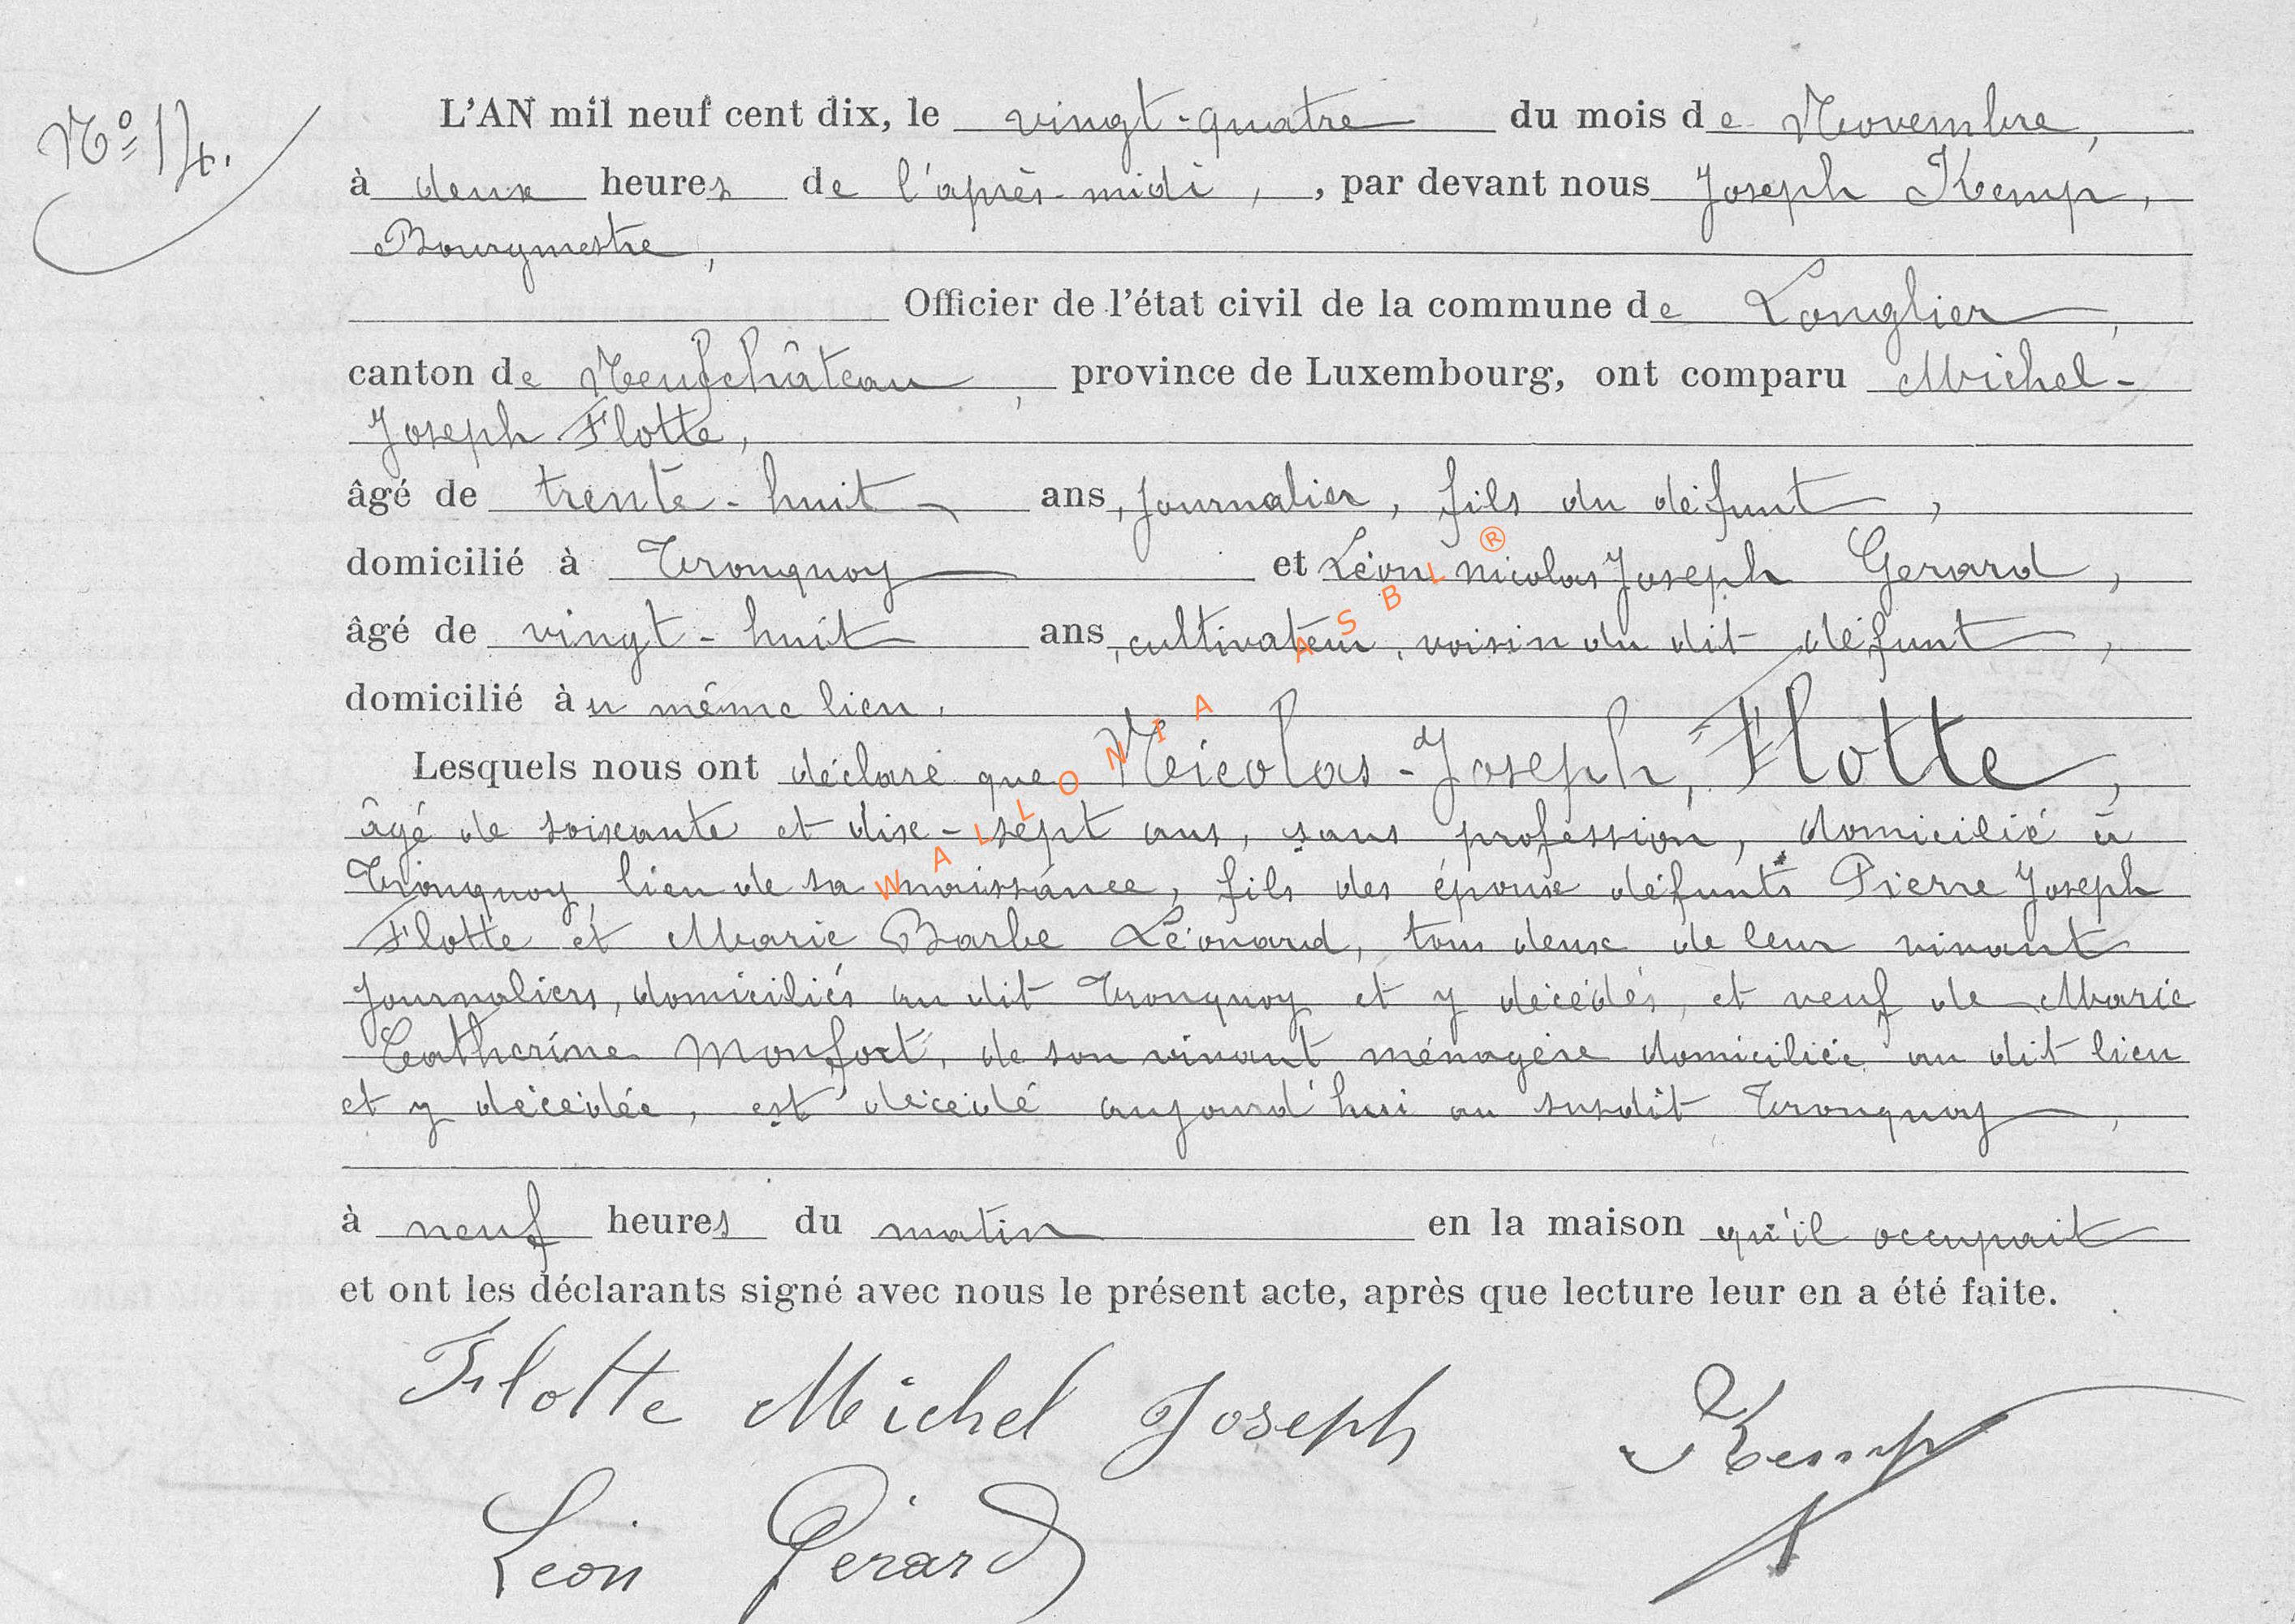 Nº 14.
L'AN mil neuf cent dix, le vingt-quatre du mois de Novembre,
à deux heures de l'après-midi, , par devant nous Joseph Kemp,
Bourgmestre,
Officier de l'état civil de la commune de Longlier,
canton de Neufchâteau, province de Luxembourg, ont comparu Michel-
Joseph Flotte,
âgé de trente-huit ans, journalier, fils du défunt,
domicilié à Tronquoy et Léon Nicolas Joseph Gerard,
âgé de vingt-huit ans, cultivateur, voisin du dit défunt,
domicilié au même lieu.
Lesquels nous ont déclaré que Nicolas-Joseph, Flotte,
âgé de soixante et dix-sept ans, sans profession, domicilié à
Tronquoy, lieu de sa naissance, fils des époux défunts Pierre Joseph
Flotte et Marie Barbe Léonard, tous deux de leur vivant
journaliers, domiciliés au dit Tronquoy et y décédés, et veuf de Marie
Catherine Monfort, de son vivant ménagère domiciliée au dit lieu
et y décédée, est décédé aujourd'hui au susdit Tronquoy,
à neuf heures du matin en la maison qu'il occupait
et ont les déclarants signé avec nous le présent acte, après que lecture leur en a été faite.
Flotte Michel Joseph
Kemp
Léon Gérard
WALLONIA ASBL ®